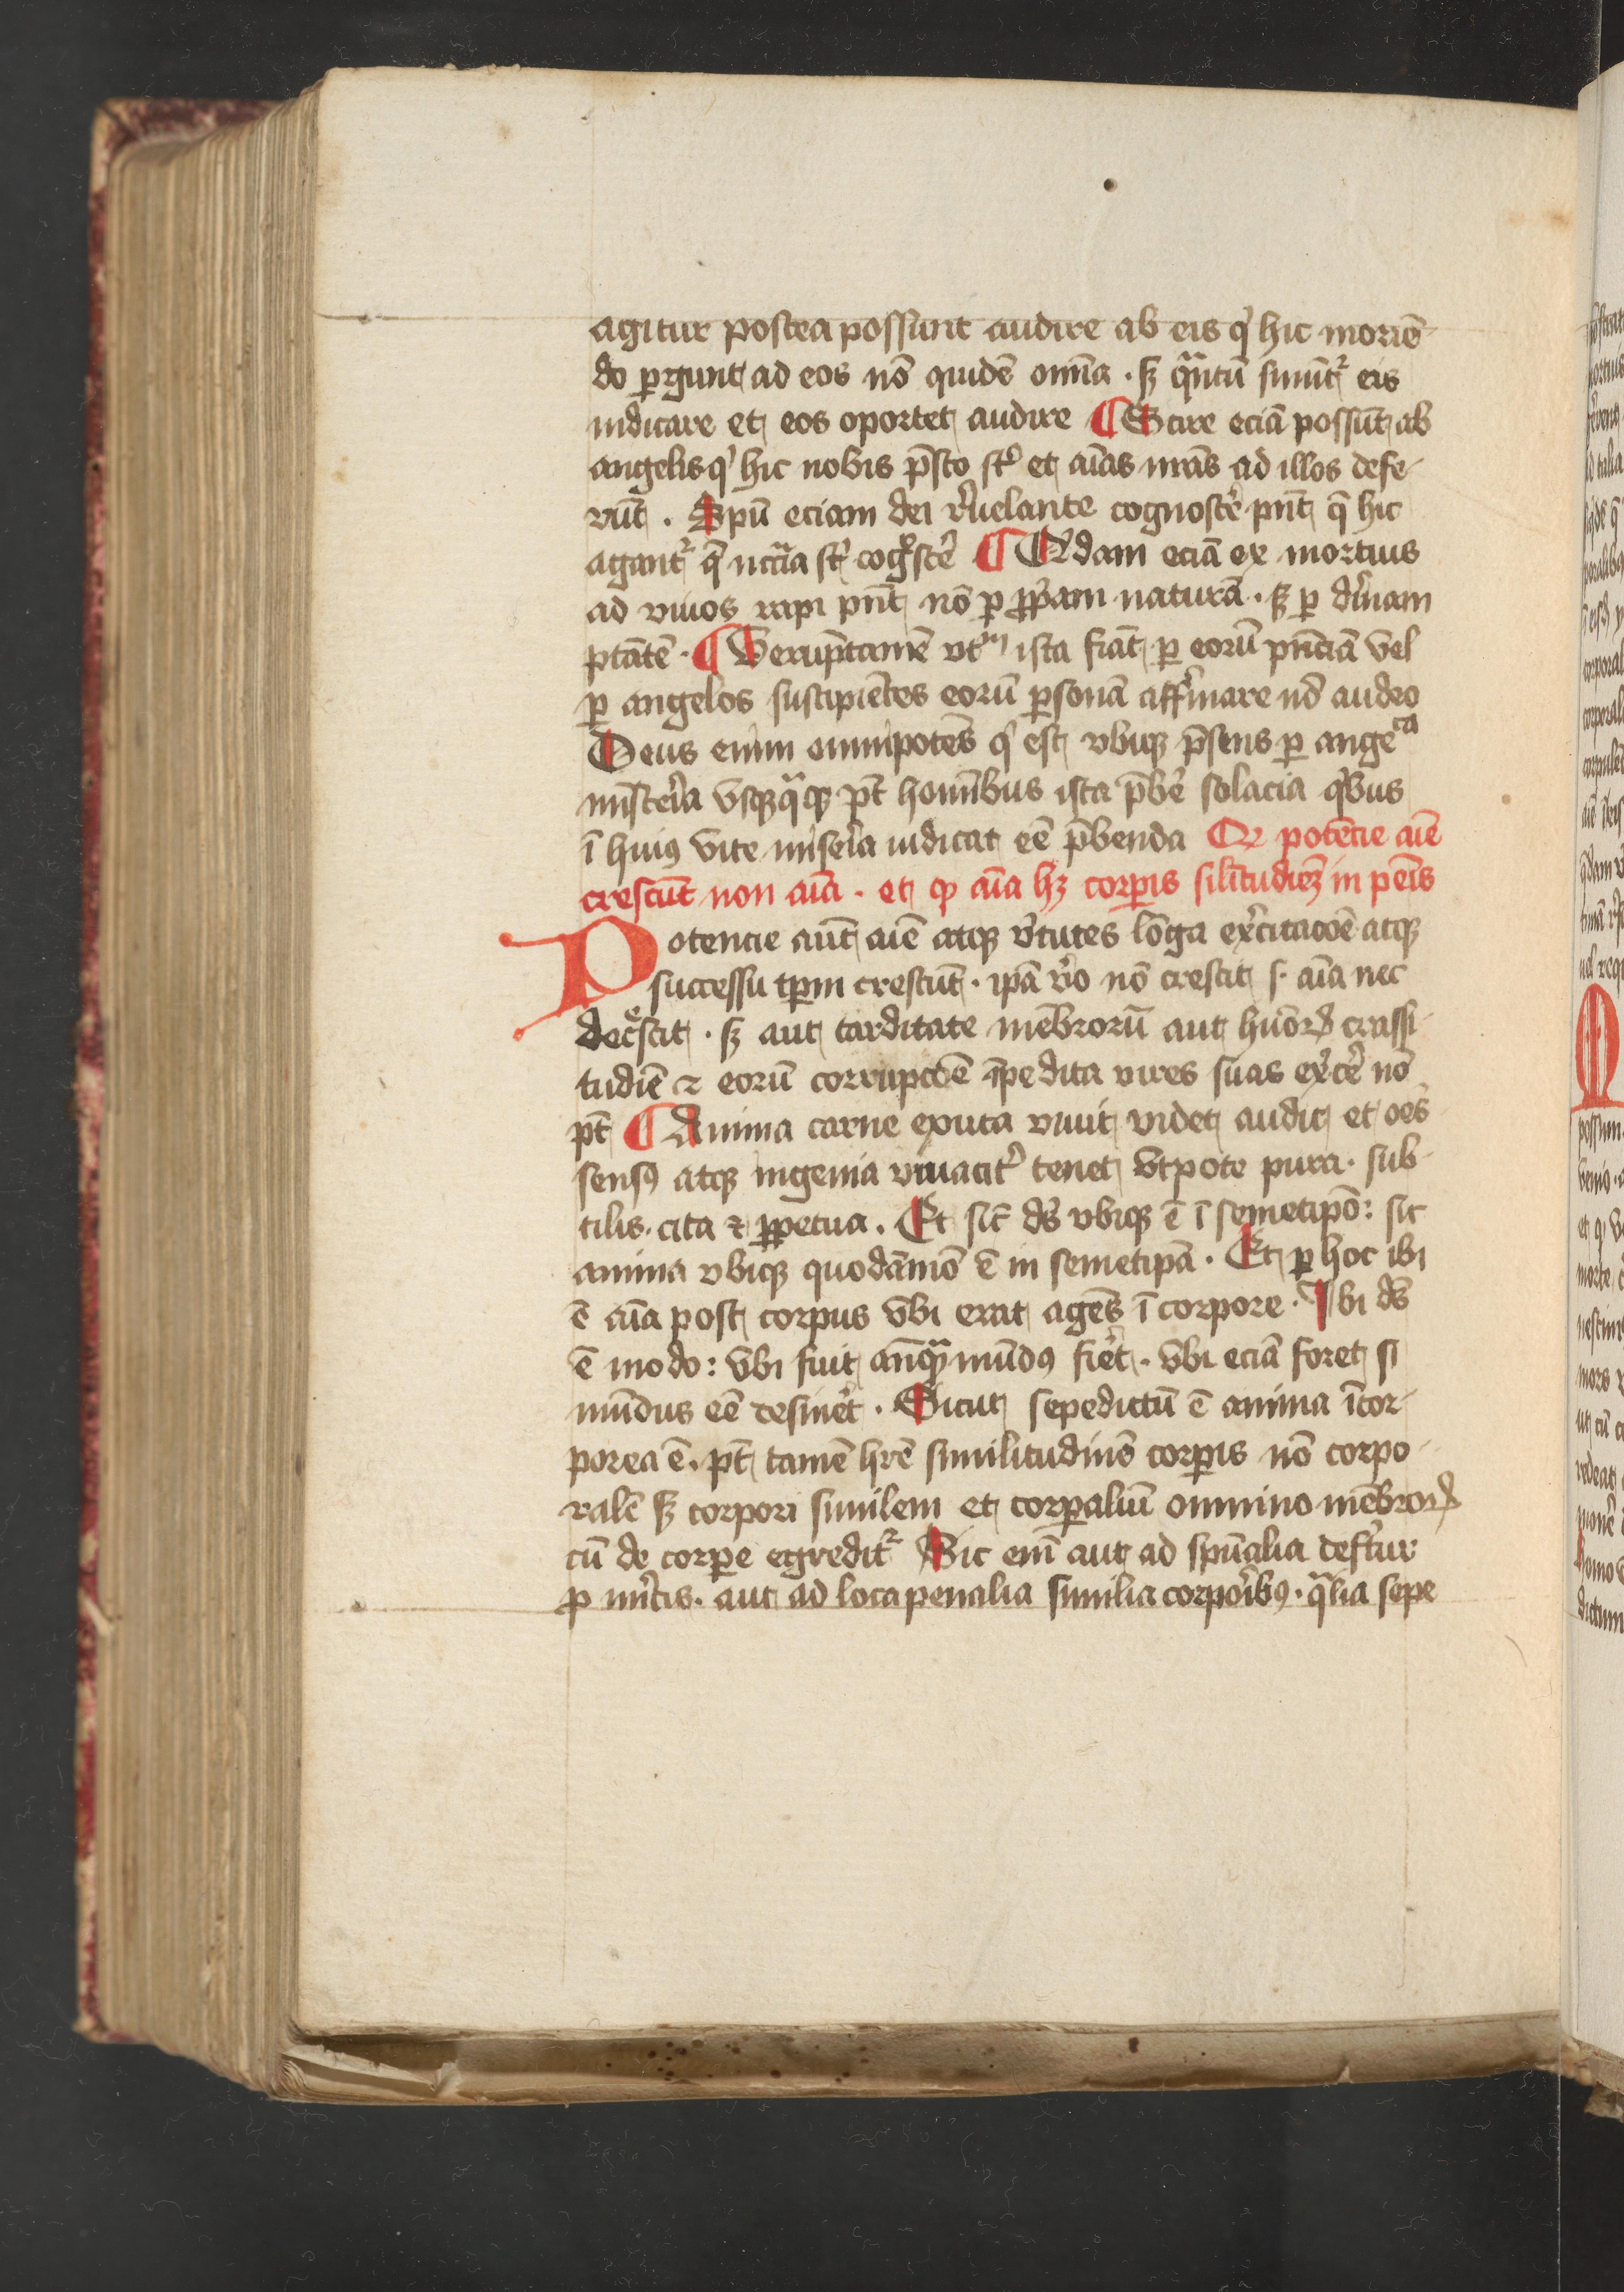 agitur postea possunt audire ab eis qͥ hic moriē-
do ꝑgunt ad eos nō quidē om̄ia · sꝫ qᷓntū sinūtᷣ eis
indicare et eos oportet audire ¶ Scire eciā possūt ab
angelis qͥ hic nobis p̄sto st̄ et aīas nrās ad illos defe-
rūt . Spū eciam dei rͤuelante cognoscē pn̄t q̄ hic
agantᷣ q̄ nccͣia st̄ cogͦscē ¶ Qͥdam eciā ex mortuis
ad viuos rapi pn̄t nō ꝑ ꝓpͥam naturā · sꝫ ꝑ dͥuinam
ptātē · ¶ Verūptamē vtͬm ista fiāt ꝑ eorū pn̄ciā vel
ꝑ angelos suscipiētes eorū ꝑsonā affͥmare nō audeo
Deus enim omnipotēs qͥ est vbiqꝫ p̄sens ꝑ angeᶜᵃ
mīsteͥia vsqꝫqᷓqꝫ pt̄ homībus ista p̄bē solacia qͥbus
ī huiꝰ vite miseͥia iudicat eē p̄benda Qꝫ potēcie aīe
crescūt non aīa · et ꝙ aīa hꝫ corꝑis silītudiēꝫ in penīs
Potencie aūt aīe atqꝫ vͥtutes lōga exͤcitacōe atqꝫ
successu tꝑm crescūt · ipā vͦo nō crescit s· aīa nec
decͤscit · sꝫ aut tarditate mēbrorū aut humōrꝝ crassi-
tudīe ⁊ eorū corrupcōe īpedita vires suas exͤcē nō
pt̄ ¶ Anima carne exuta viuit videt audit et oēs
sensꝰ atqꝫ ingenia viuacitͤ tenet vtpote pura · sub-
tilis · cita ⁊ ꝑpetua . Et sic̄ ds̄ vbiqꝫ ē ī semetipō : sic
anima vbiqꝫ quodāmō ē in semetipā · Et ꝑ hoc ibi
ē aīa post corpus vbi erat agēs ī corpore · Ibi ds̄
ē modo : vbi fuit anͣqᷓ mūdꝰ fieͤt · vbi eciā foret si
mūdus eē desineͤt · Sicut sepedictū ē anima īcor-
porea ē · pt̄ tamē hr̄e similitudinē corꝑis nō corpo-
ralē sꝫ corpori similem et corꝑaliū omnino mēbrorꝝ
cū de corꝑe egreditᷣ Sic enī aut ad spūalia defͤtur
ꝓ mͤitis · aut ad loca penalia similia corpōibꝰ · qᷓlia sepe